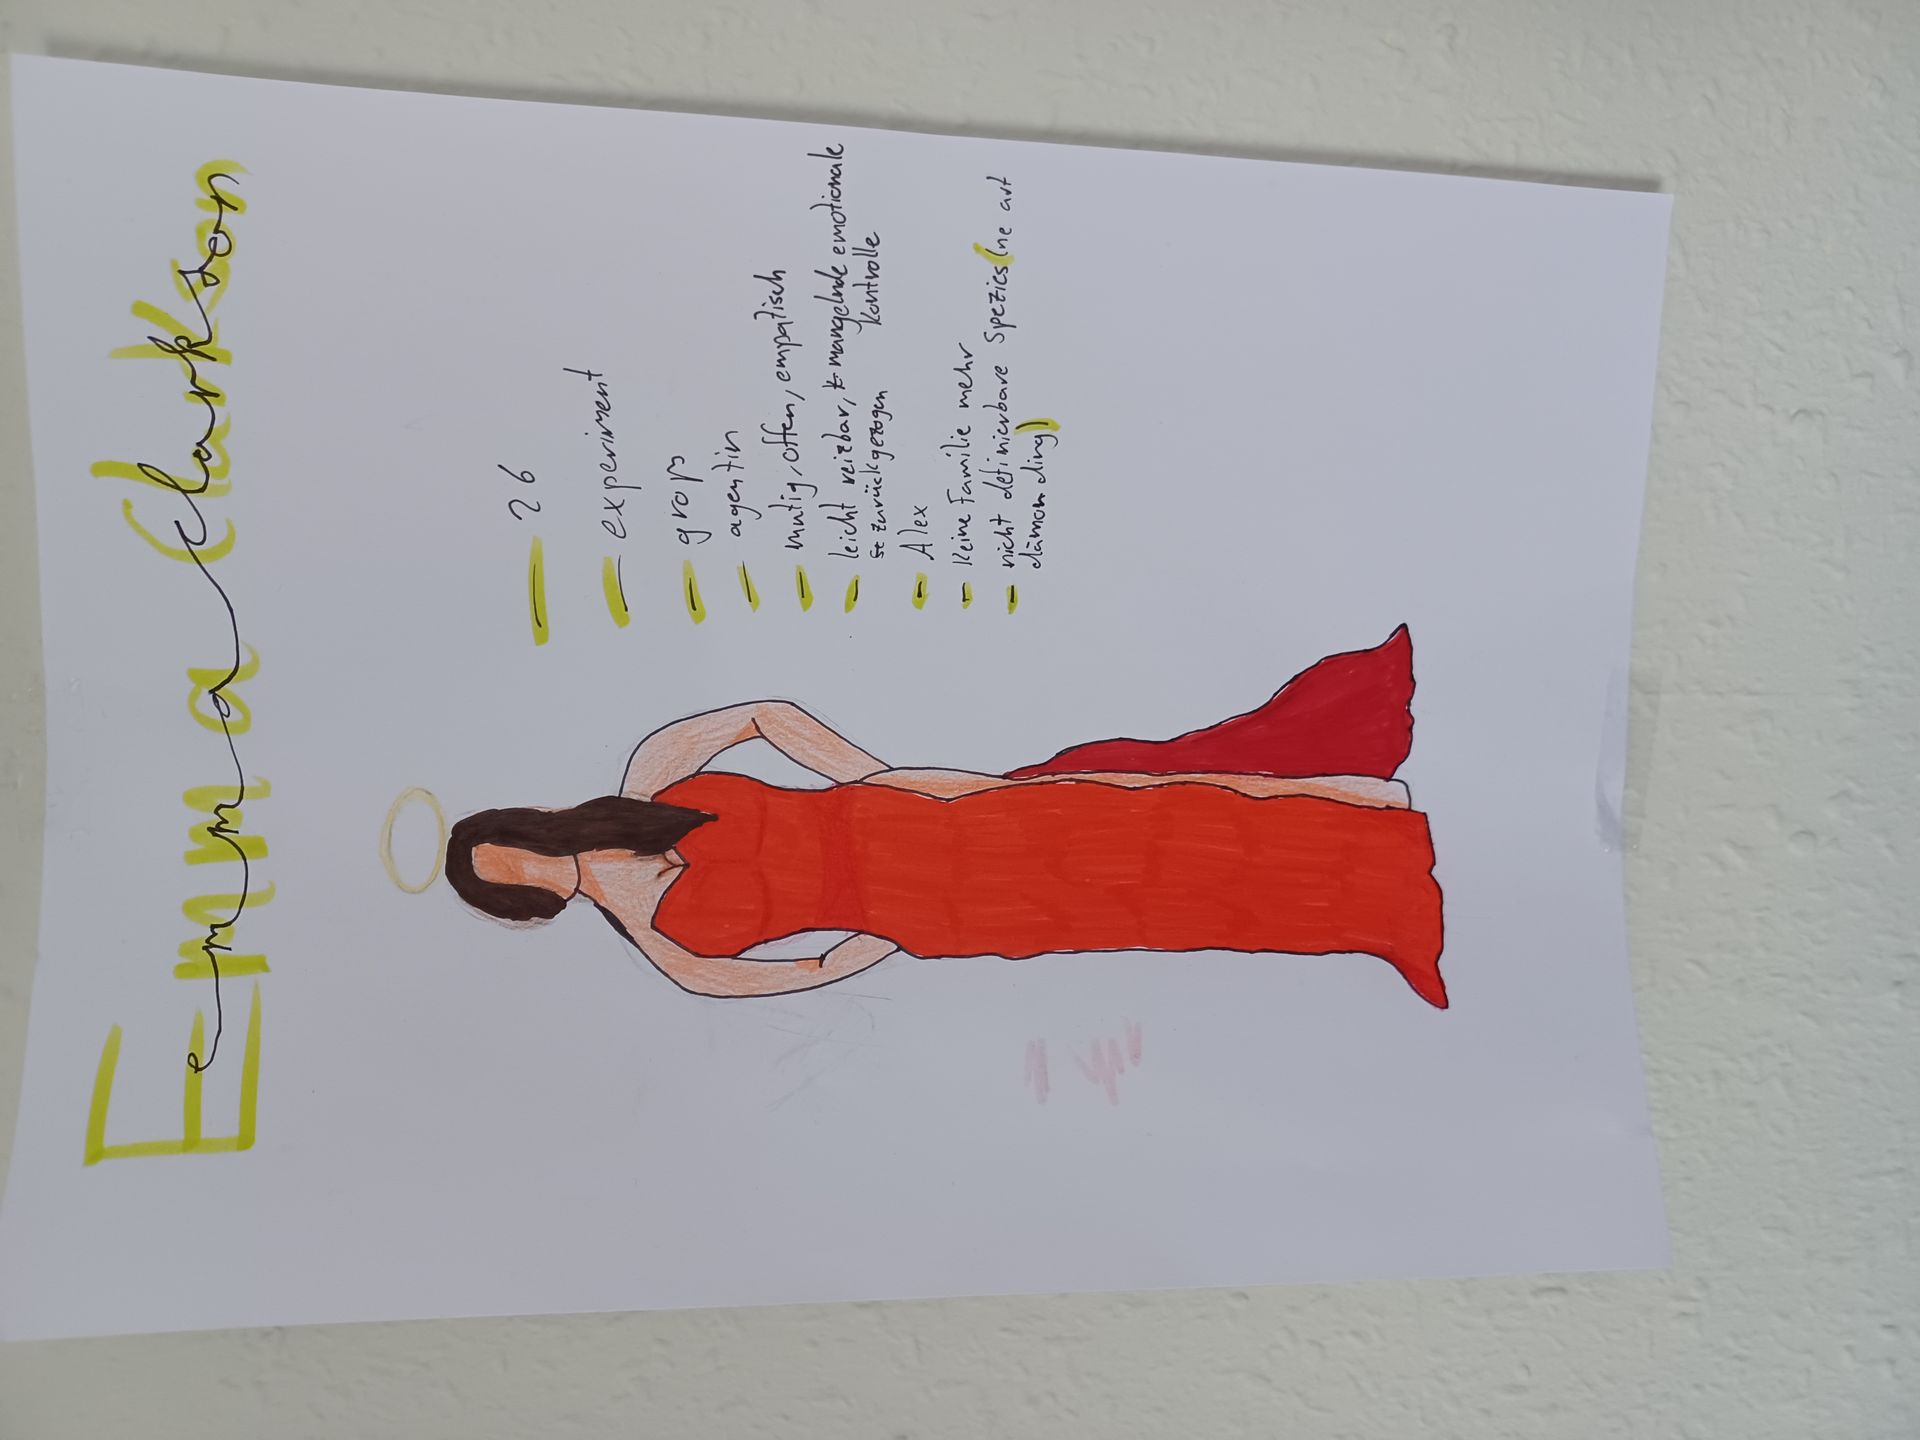 Emma Clarkson
emma clarkson
- 26
- experiment
- groß
- agentin
- mutig, offen, empatisch
- leicht reizbar, mangelnde emotionale
Kontrolle
zurückgezogen
- Alex
- Keine Familie mehr
- nicht definierbare Spezies (ne art
dämon ding)